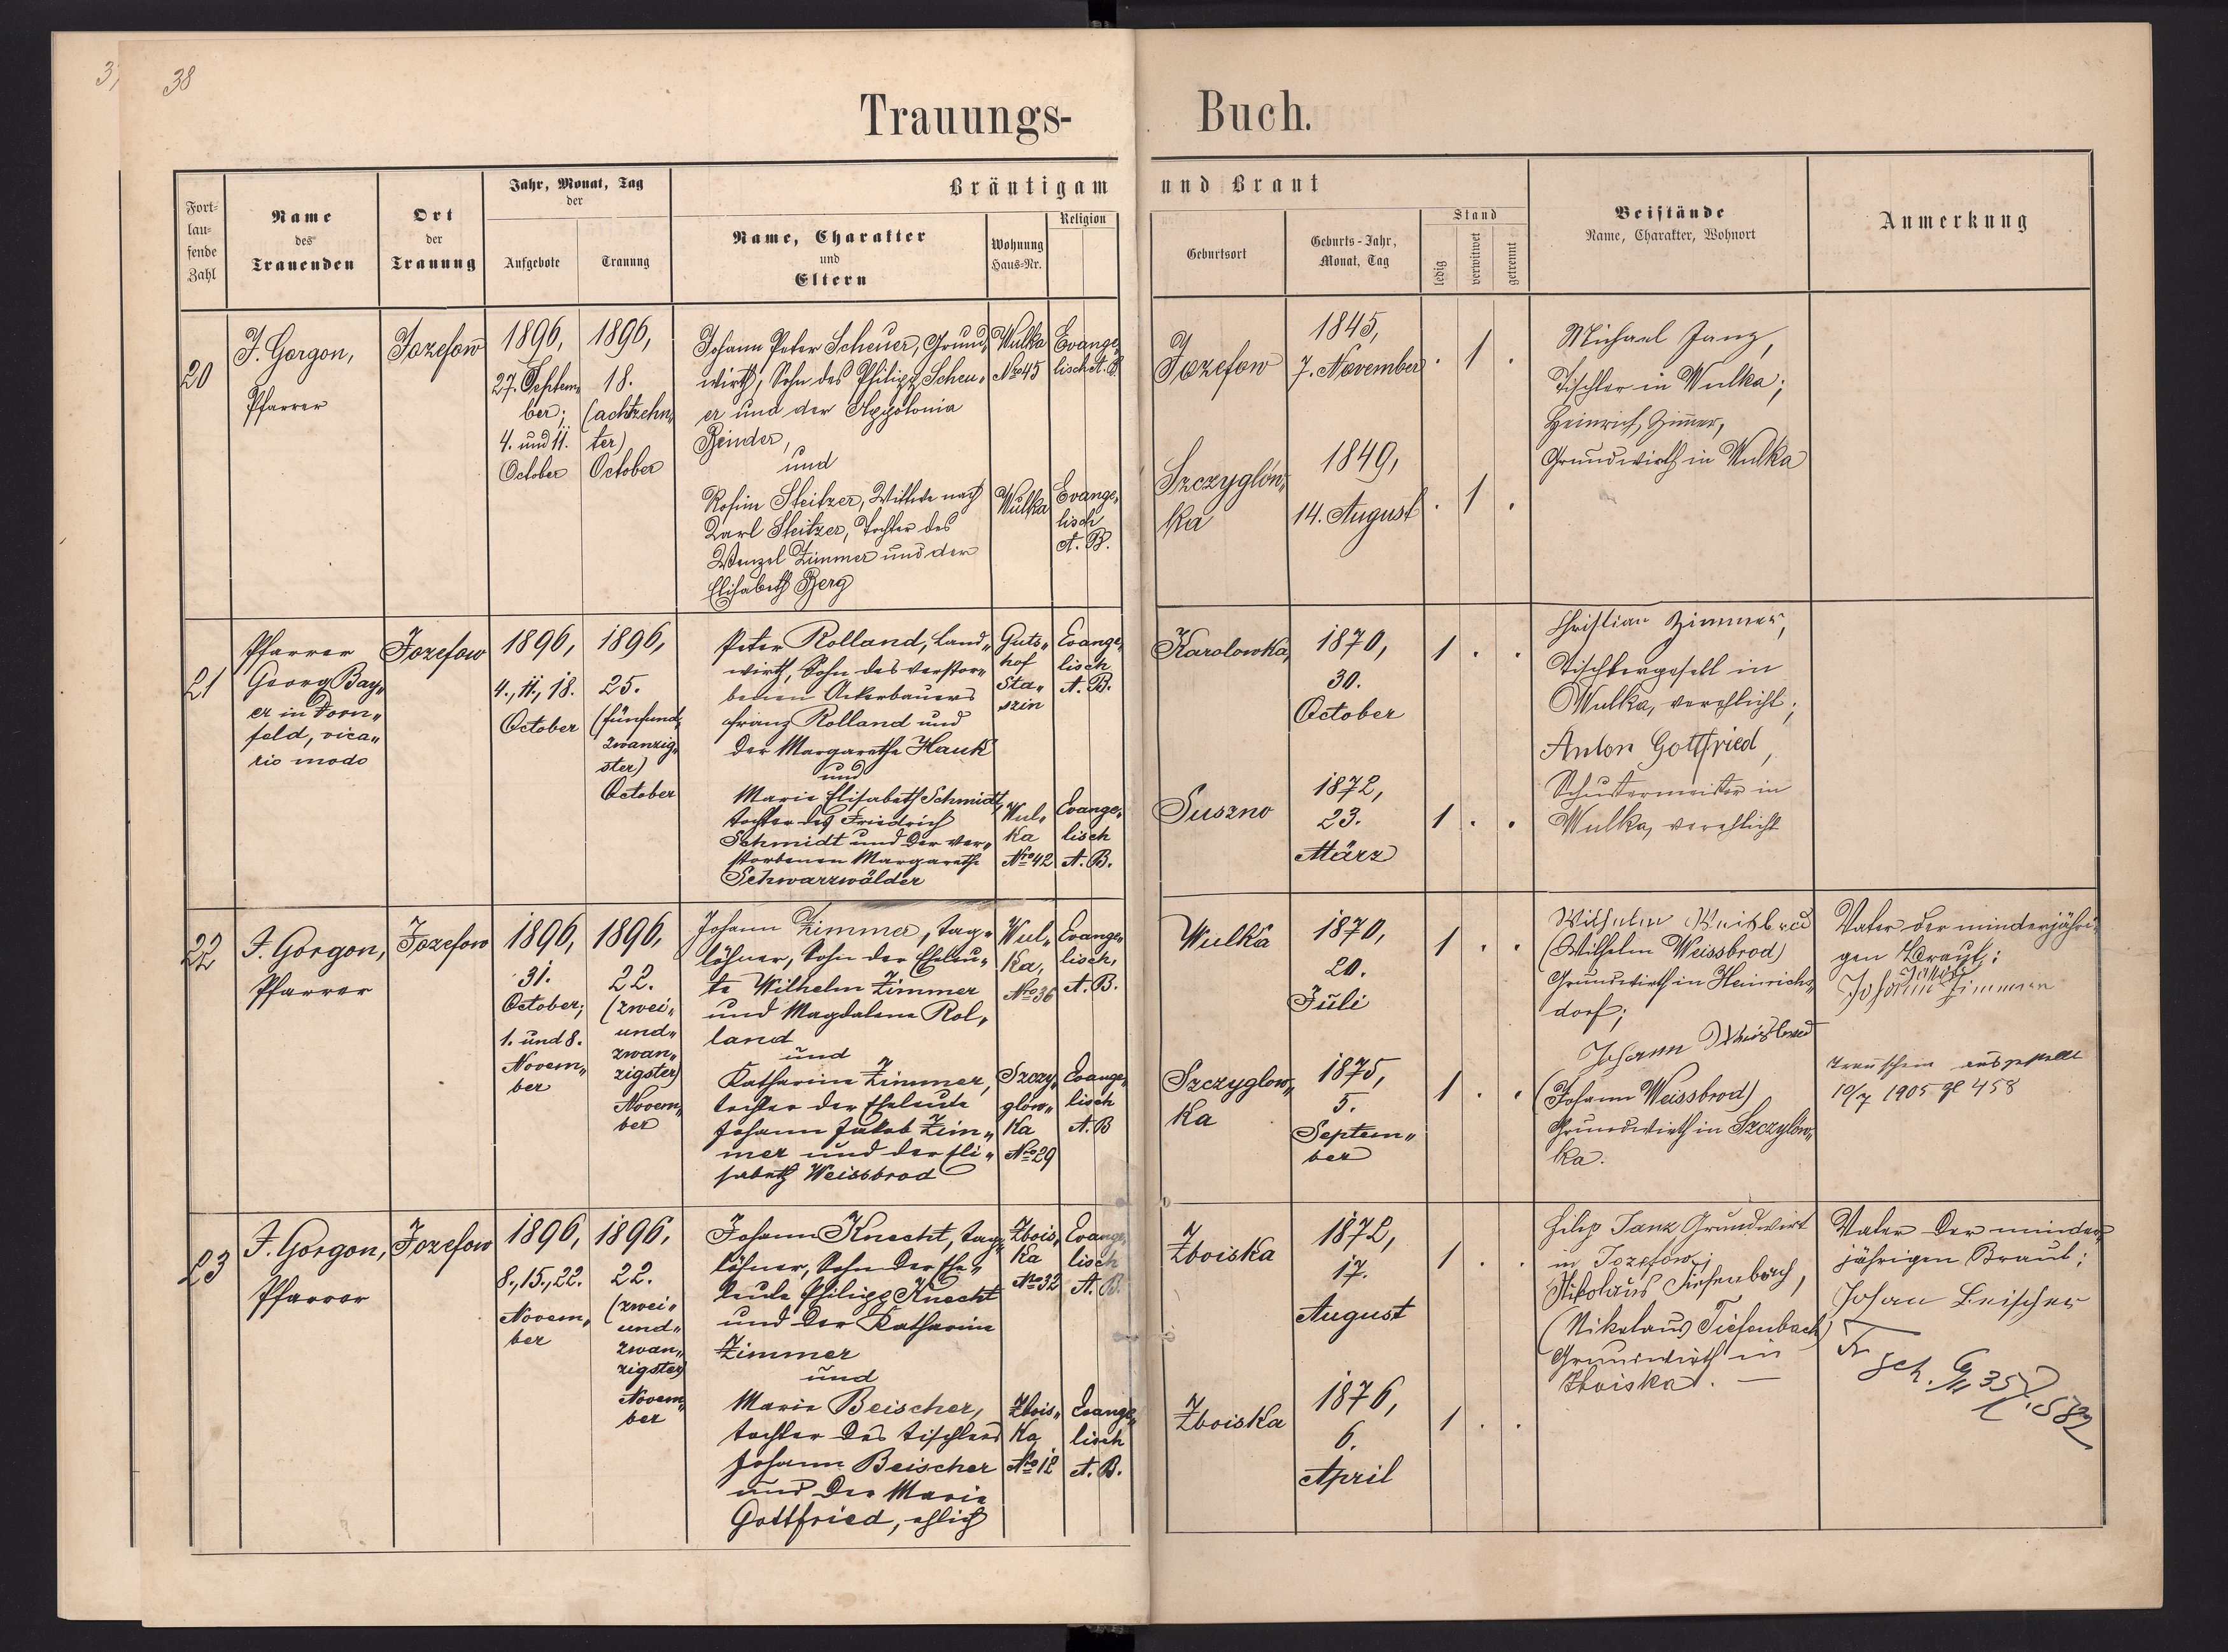 38
Trauungs-Buch.
Fort-
lau-
fende
Zahl
Name
des
Trauenden
Ort
der
Trauung
Jahr, Monat, Tag
der
Aufgebote
Trauung
Bräutigam und Braut
Name, Charakter
und
Eltern
Wohnung
Haus-Nr.
Religion
Geburtsort
Geburts-Jahr,
Monat, Tag
Stand
ledig
verwitwet
getrennt
Beistände
Name, Charakter, Wohnort
Anmerkung
20
J. Gorgon,
Pfarrer
Jozefow
1896,
27. Septem„
ber;
4. und 11.
October
1896,
18.
(achtzehn„
ter)
October
Johann Peter Scheuer, Grund„
wirth, Sohn des Philipp Scheu„
er und der Appolonia
Bender,
und
Rosina Steitzer, Wittwe nach
Karl Steitzer, Tochter des
Wenzel Zimmer und der
Elisabeth Berg
Wulka
Nro 45
Evange„
lisch A. B.
Wulka
Evange„
lisch
A. B.
Jozefow
1845,
7. November
. 1 .
Szczyglow„
ka
1849,
14. August
. 1 .
Michael Janz,
Tischler in Wulka;
Heinrich Zimer,
Grundwirth in Wulka
21
Pfarrer
Georg Bay„
er in Dorn„
feld, vica„
rio modo
Jozefow
1896,
4., 11., 18.
October
1896,
25.
(fünfund„
zwanzig„
ster)
October
Peter Rolland, Land„
wirth, Sohn des verstor„
benen Ackerbauers
Franz Rolland und
der Margarethe Hauk
und
Marie Elisabeth Schmidt,
Tochter des Friedrich
Schmidt und der ver„
storbenen Margarethe
Schwarzwälder
Guts„
hof
Sta„
szin
Evange„
lisch
A. B.
Wul„
ka
Nro 42
Evange„
lisch
A. B.
Karolowka,
1870,
30.
October
1 . .
Suszno
1872,
23.
März
1 . .
Christian Zimmer,
Tischlergesell in
Wulka, verehlicht;
Anton Gottfried,
Schustermeister in
Wulka, verehlicht
22
J. Gorgon,
Pfarrer
Jozefow
1896,
31.
October;
1. und 8.
Novem„
ber
1896,
22.
(zwei„
und„
zwan„
zigster)
Novem„
ber
Johann Zimmer, Tag„
löhner, Sohn der Eheleu„
te Wilhelm Zimmer
und Magdalena Rol„
land
und
Katharina Zimmer,
Tochter der Eheleute
Johann Jakob Zim„
mer und der Eli„
sabeth Weissbrod
Wul„
ka,
Nro 36
Evange„
lisch,
A. B.
Szczy„
glow„
ka
Nro 29
Evange„
lisch
A. B
Wulka
1870,
20.
Juli
1 . .
Szczyglow„
ka
1875,
5.
Septem„
ber
1 . .
Wilhelm Weisbrod
(Wilhelm Weissbrod)
Grundwirth in Heinrichs„
dorf;
Johann Weisbrod
(Johann Weissbrod)
Grundwirth in Szczylow„
ka.
Vater der minderjähri„
gen Braut:
Jakob
Johann Zimmer
Trauschein ausgestellt
10/7 1905 458
23
J. Gorgon,
Pfarrer
Jozefow
1896,
8., 15., 22.
Novem„
ber
1896,
22.
(zwei„
und„
zwan„
zigster)
Novem„
ber
Johann Knecht, Tag„
löhner, Sohn der Ehe„
leute Philipp Knecht
und der Katharina
Zimmer
und
Marie Beischer,
Tochter des Tischlers
Johann Beischer
und der Marie
Gottfried, ehlich
Zbois„
ka
Nro 32
Evange„
lisch
A. B.
Zbois„
ka
Nro 12
Evange„
lisch
A. B.
Zboiska
1872,
17.
August
1 . .
Zboiska
1876,
6.
April
1 . .
Filip Janz Grundwirt
in Jozefow;
Nikolaus Tiefenbach,
(Nikolaus Tiefenbach)
Grundwirth in
Zboiska. —
Vater der minder„
jährigen Braut:
Johan Beischer